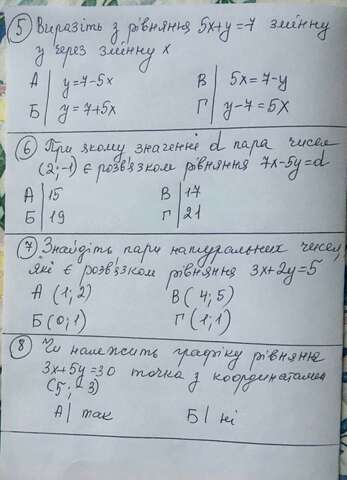 5 Виразіть з рівняння 5x+y=7 змінну
y через змінну x
А | y=7-5x В | 5x=7-y
Б | y=7+5x Г | y-7=5x
6 При якому значенні d пара чисел
(2;-1) є розв'язком рівняння 7x-5y=d
А | 15 В | 17
Б | 19 Г | 21
7 Знайдіть пари натуральних чисел,
які є розв'язком рівняння 3x+2y=5
А (1;2) В (4;5)
Б (0;1) Г (1;1)
8 Чи належить графіку рівняння
3x+5y=30 точка з координатами
(5; 3)
А | так Б | ні